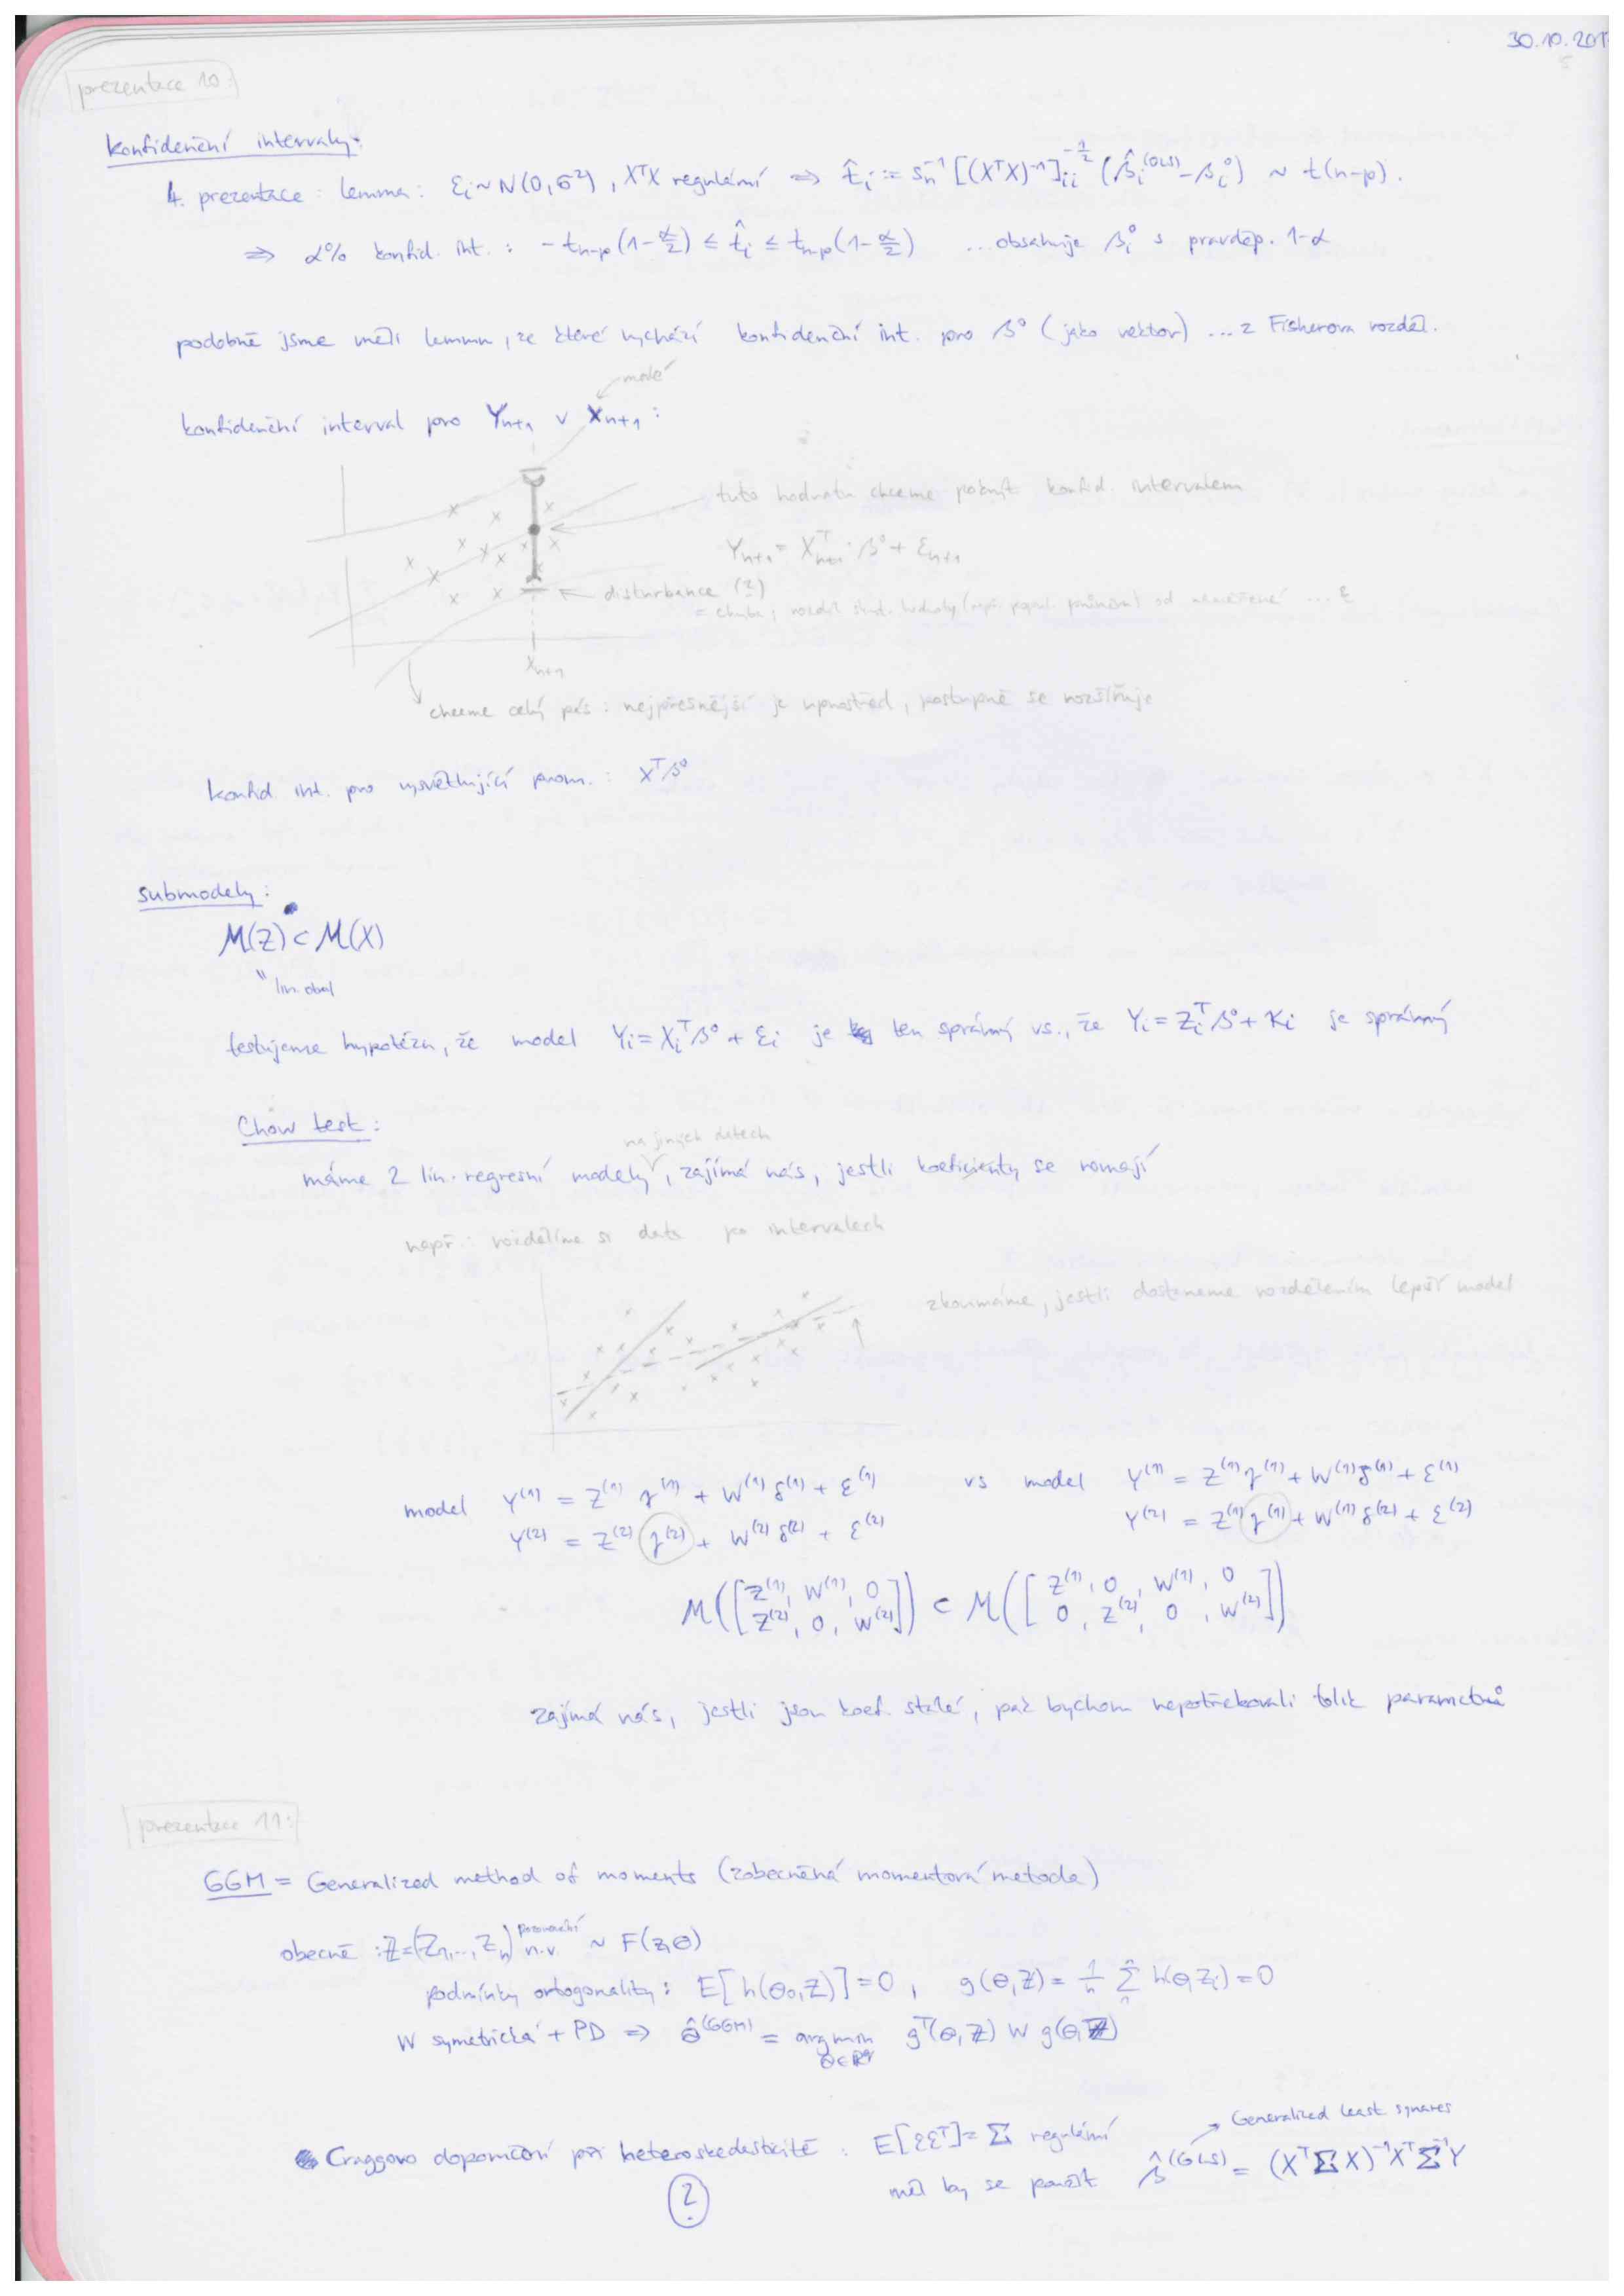 30.10.201
prezentace 10:
konfidenční intervaly:
4. prezentace : lemma : εᵢ ~ N(0,σ²), XᵀX regulární ⇒ t̂ᵢ := sₙ⁻¹ [(XᵀX)⁻¹]ᵢᵢ^(-1/2) (β̂ᵢ^(OLS) - βᵢ⁰) ~ t(n-p).
⇒ α% konfid. int. : -tₙ₋ₚ(1-α/2) ≤ t̂ᵢ ≤ tₙ₋ₚ(1-α/2) ...obsahuje βᵢ⁰ s pravděp. 1-α
podobně jsme měli lemma, ze které vychází konfidenční int. pro β⁰ (jako vektor) ... z Fisherova rozděl.
konfidenční interval pro Yₙ₊₁ v Xₙ₊₁ :
tuto hodnotu chceme pokrýt konfid. intervalem
Yₙ₊₁ = Xₙ₊₁ᵀ·β⁰ + εₙ₊₁
disturbance (?)
= chyba, rozdíl skut. hodnoty od naměřené ... ε
Xₙ₊₁
chceme celý pás : nejpřesnější je uprostřed, postupně se rozšiřuje
konfid. int. pro vysvětlující prom. : Xᵀβ⁰
submodely :
M(Z) ⊂ M(X)
" lin. obal
testujeme hypotézu, že model Yᵢ = Xᵢᵀβ⁰ + εᵢ je ten správný vs., že Yᵢ = Zᵢᵀβ⁰ + κᵢ je správný
Chow test :
na jiných datech
máme 2 lin. regresní modely, zajímá nás, jestli koeficienty se rovnají
např.: rozdělíme si data po intervalech
zkoumáme, jestli dostaneme rozdělením lepší model
model Y⁽¹⁾ = Z⁽¹⁾ γ⁽¹⁾ + W⁽¹⁾ δ⁽¹⁾ + ε⁽¹⁾ vs model Y⁽¹⁾ = Z⁽¹⁾ γ⁽¹⁾ + W⁽¹⁾ δ⁽¹⁾ + ε⁽¹⁾
Y⁽²⁾ = Z⁽²⁾ γ⁽²⁾ + W⁽²⁾ δ⁽²⁾ + ε⁽²⁾ Y⁽²⁾ = Z⁽¹⁾ γ⁽¹⁾ + W⁽¹⁾ δ⁽²⁾ + ε⁽²⁾
M([Z⁽¹⁾, W⁽¹⁾, 0 ]) ⊂ M([Z⁽¹⁾, 0, W⁽¹⁾, 0 ])
Z⁽²⁾, 0, W⁽²⁾ 0, Z⁽²⁾, 0, W⁽²⁾
zajímá nás, jestli jsou koef. stálé, pak bychom nepotřebovali tolik parametrů
prezentace 11:
GGM = Generalized method of moments (zobecněná momentová metoda)
obecně : Z = (Z₁,...,Zₙ) pozorování n.v. ~ F(z,θ)
podmínky ortogonality : E[h(θ₀,Z)] = 0 , g(θ,Z) = 1/n Σ h(θ,Zᵢ) = 0
W symetrická + PD ⇒ θ̂^(GGM) = arg min gᵀ(θ,Z) W g(θ,Z)
Generalized least squares
Craggovo dopornění při heteroskedasticitě : E[εεᵀ] = Σ regulární
měl by se použít β̂^(GLS) = (XᵀΣX)⁻¹XᵀΣ⁻¹Y
?